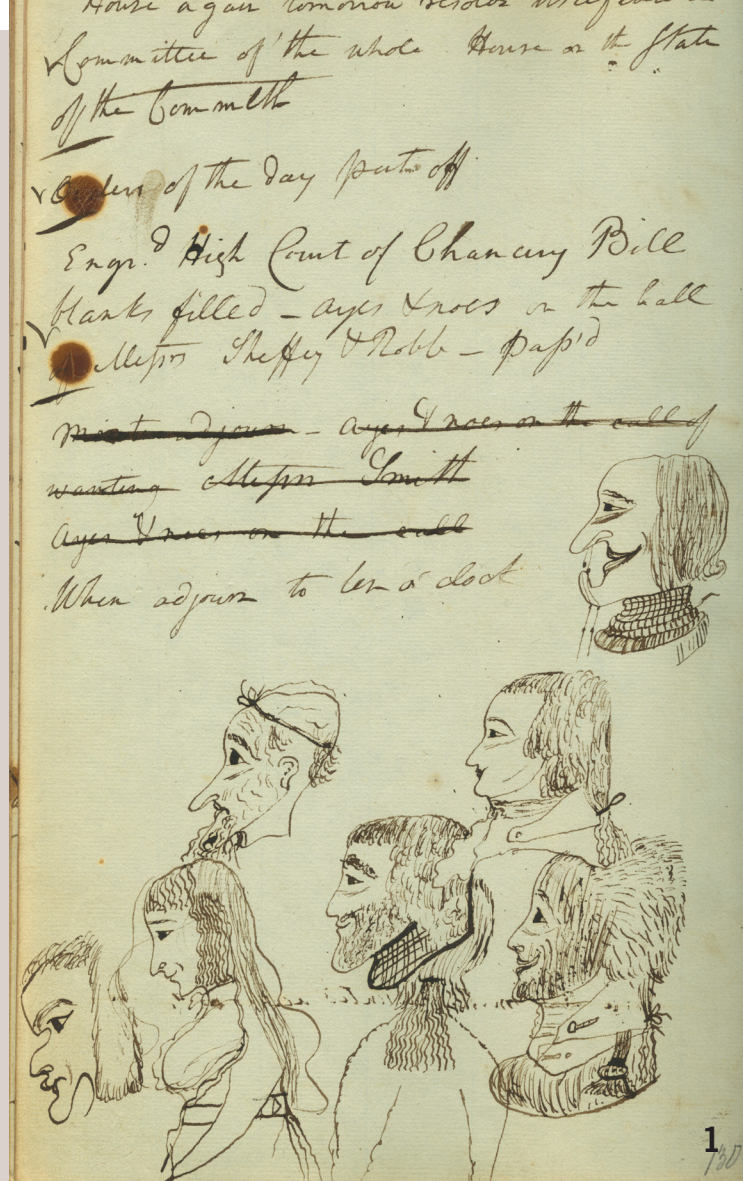 House again tomorrow resolve itself into a
Committee of the whole House on the State
of the Commlth
Orders of the day put off
Engr.d High Court of Chancery Bill
blanks filled – ayes & noes on the call
of Messrs Sheffey & Robb – pass'd
Mo to adjourn – ayes & noes on the call of
wanting Messrs Smith
ayes & noes on the call
When adjourn to ten o'clock
1
130